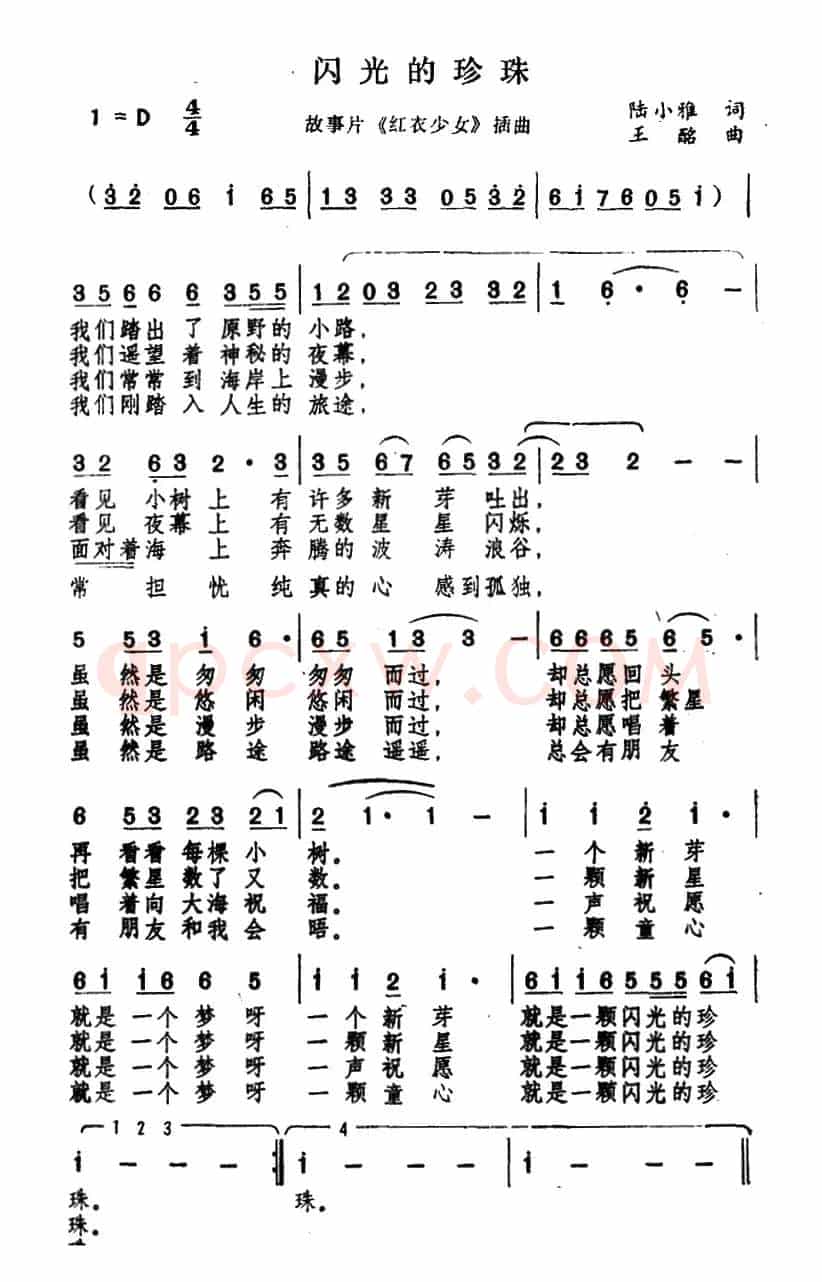 闪光的珍珠
1=D 4/4
故事片《红衣少女》插曲
陆小雅 词
王酩 曲
(3̇2̇ 06 i 65 | 13 33 05 3̇2̇ | 6i7605i) |
35 66 6 355 | 1203 23 32 | 1 6· 6 —
我们踏出了原野的小路,
我们遥望着神秘的夜幕,
我们常常到海岸上漫步,
我们刚踏入人生的旅途,
32 63 2· 3 | 35 67 65 32 | 23 2 — —
看见小树上有许多新芽吐出,
看见夜幕上有无数星星闪烁,
面对着海上奔腾的波涛浪谷,
常担忧纯真的心感到孤独,
5 53 i 6· | 65 13 3 — | 6665 65·
虽然是匆匆匆匆而过, 却总愿回头
虽然是悠闲悠闲而过, 却总愿把繁星
虽然是漫步漫步而过, 却总愿唱着
虽然是路途路途遥遥, 总会有朋友
qpcxw.COM
6 53 23 21 | 2 1· 1 — | i i 2̇ i·
再看看每棵小树。 一个新芽
把繁星数了又数。 一颗新星
唱着向大海祝福。 一声祝愿
有朋友和我会晤。 一颗童心
6i i6 6 5 | i i 2̇ i· | 6i i65 55 6i
就是一个梦呀一个新芽 就是一颗闪光的珍
就是一个梦呀一颗新星 就是一颗闪光的珍
就是一个梦呀一声祝愿 就是一颗闪光的珍
就是一个梦呀一颗童心 就是一颗闪光的珍
1 2 3 4
i — — — :| i — — — | i — — — ‖
珠。 珠。
珠。